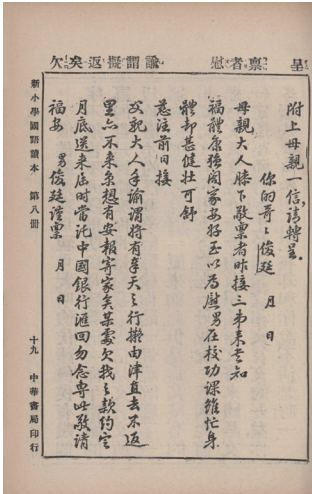 呈 稟者慰 諭謂擬返矣欠
附上母親一信,請轉呈。
你的哥々俊廷 月 日
母親大人膝下敬稟者昨接三弟來書知
福體康強闔家安好至以為慰男在校功課雖忙身
體却甚健壯可舒
慈注前日接
父親大人手諭謂將有奉天之行擬由津直去不返
里亦不來京想有安報寄家矣某處欠我之款約定
月底送來屆時當託中國銀行滙回勿念專此敬請
福安 男俊廷謹稟 月 日
新小學國語讀本 第八冊 十九 中華書局印行